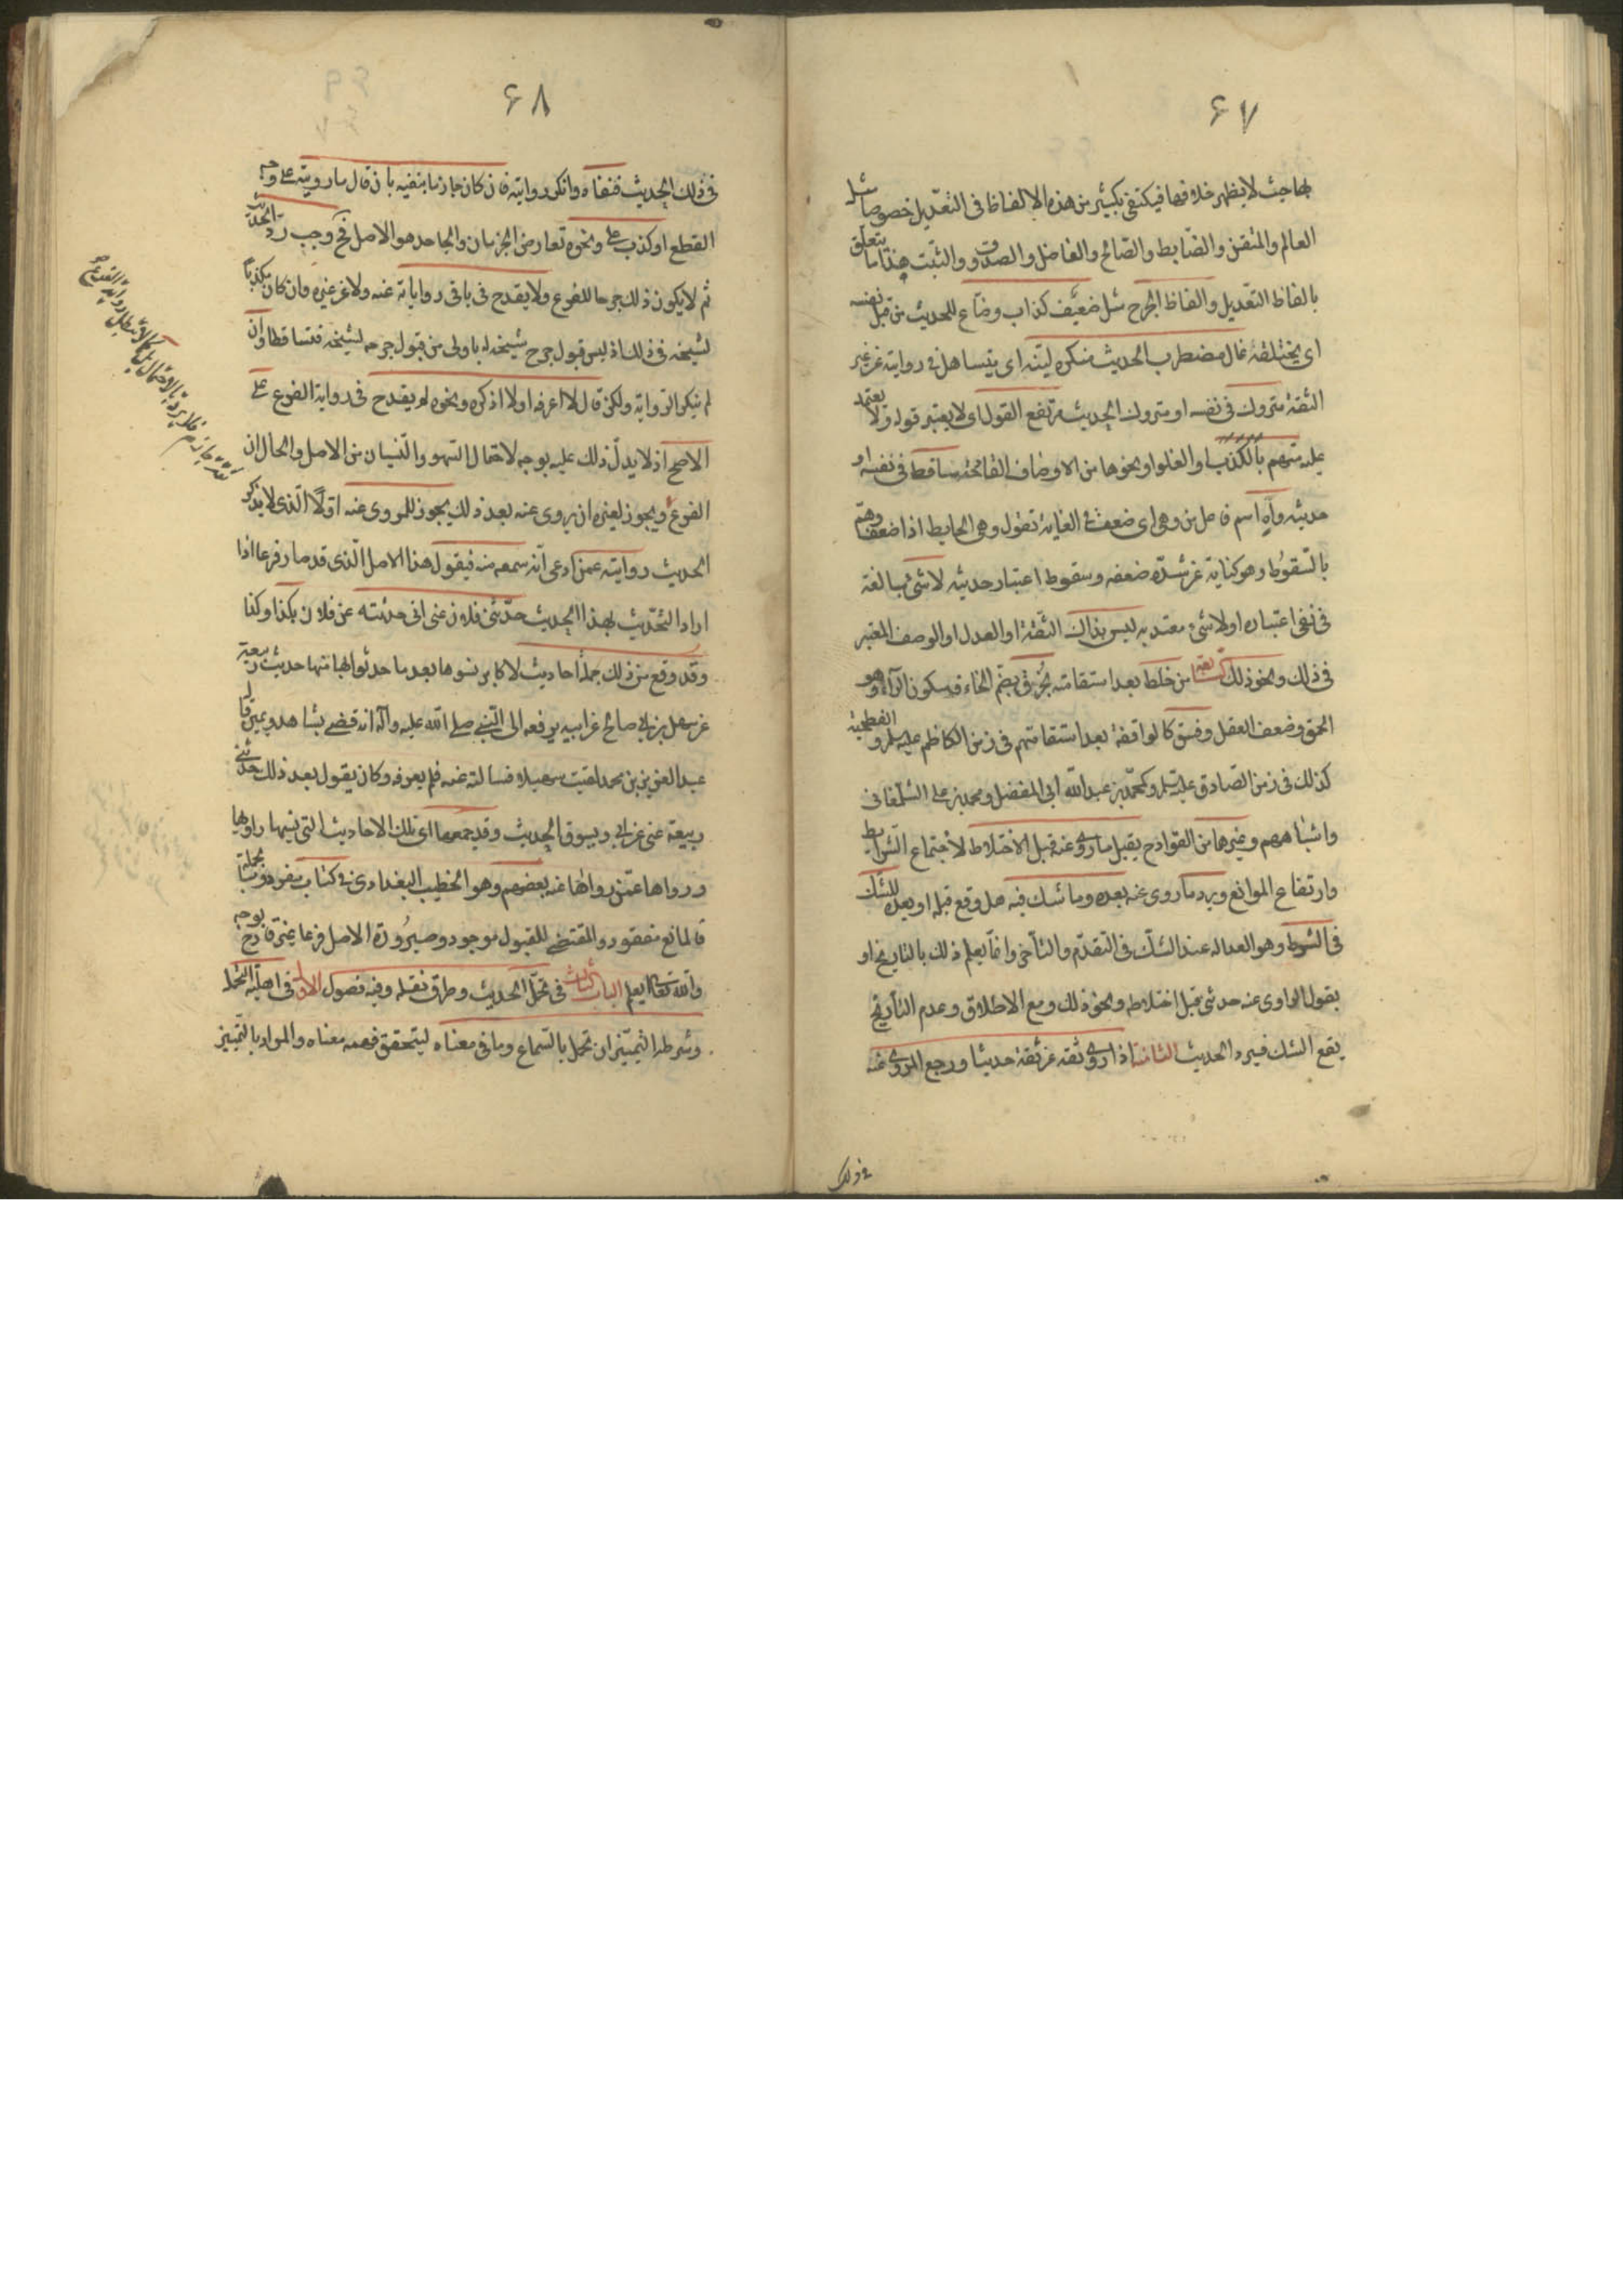 ۶۷
بها حيث لا يظهر خلافها فيكتفي بكثير من هذه الالفاظ في التعديل خصوصا مثل
العالم والمتقن والضابط والصالح والفاضل والصدوق والثبت هذا ما يتعلق
بالفاظ التعديل والفاظ الجرح مثل ضعيف كذاب وضاع للحديث من قبل نفسه
اى يختلقه غال مضطرب الحديث منكره ليّنه اى يتساهل في روايته عن غير
الثقة متروك في نفسه او متروك الحديث مرتفع القول اى لا يعتبر قوله ولا يعتمد
عليه متهم بالكذب او الغلو او نحوها من الاوصاف القادحة ساقط في نفسه او
حديثه واهٍ اسم فاعل من وهى اى ضعف في الغاية تقول وهى الحايط اذا ضعف وهمّ
بالسقوط وهو كناية عن شدة ضعفه وسقوط اعتبار حديثه لا شئ مبالغة
في نفى اعتباره او لا شئ معتد به ليس بذاك الثقة او العدل او الوصف المعتبر
في ذلك ونحو ذلك السابعة من خلط بعد استقامته بخرق بضم الخاء فسكون الراء وهو
الحمق وضعف العقل وفسق كالواقفة بعد استقامتهم في زمن الكاظم عليه السلم والفطحية
كذلك في زمن الصادق عليه السلم وكمحمد بن عبد الله ابى المفضل ومحمد بن على الشلمغاني
واشباههم وغيرها من القوادح يقبل ما روى عنه قبل الاختلاط لاجتماع الشرايط
وارتفاع الموانع ويرد ما روى عنه بعده وما شك فيه هل وقع قبله او بعده للشك
في الشرط وهو العدالة عند الشك في التقدم والتأخر وانما يعلم ذلك بالتاريخ او
بقول الراوى عنه حدثنى قبل اختلاطه ونحو ذلك ومع الاطلاق وعدم التاريخ
يقع الشك فيرد الحديث الثامنة اذا روى ثقة عن ثقة حديثا ورجع المروى عنه
في ذلك
۶۸
في ذلك الحديث فنفاه وانكر روايته فان كان جازما بنفيه بان قال ما رويته على وجه
القطع او كذب على ونحوه تعارض الجزمان والجاحد هو الاصل فح وجب رد الحديث
ثم لا يكون ذلك جرحا للفرع ولا يقدح في باقى رواياته عنه ولا عن غيره وان كان مكذبا
لشيخه في ذلك اذ ليس قبول جرح شيخه له باولى من قبول جرحه لشيخه فتساقطا وان
لم ينكر الرواية ولكن قال لا اعرفه او لا اذكره ونحوه لم يقدح في رواية الفرع على
الاصح اذ لا يدل ذلك عليه بوجه لاحتمال السهو والنسيان من الاصل والحال ان
الفرع ويجوز لغيره ان يروى عنه بعد ذلك يجوز للمروى عنه اولا الذى لا يذكر
الحديث روايته عمن ادعى انه سمعه منه فيقول هذا الاصل الذى قد صار فرعا اذا
اراد التحديث بهذا الحديث حدثنى فلان عنى انى حدثته عن فلان بكذا وكذا
وقد وقع من ذلك جملة احاديث لاكابر نسوها بعد ما حدثوا بها منها حديث ربيعة
عن سهيل بن ابى صالح عن ابيه يرفعه الى النبى صلى الله عليه وآله انه قضى بشاهد ويمين قال
عبد العزيز بن محمد لقيت سهيلا فسالته عنه فلم يعرفه وكان يقول بعد ذلك حدثنى
ربيعة عنى عن ابى ويسوق الحديث وقد جمعها اى تلك الاحاديث التى نسيها راويها
ورواها عمن رواها عنه بعضهم وهو الخطيب البغدادى في كتاب مفرد وبالجملة
فالمانع مفقود والمقتضى للقبول موجود وصيرورة الاصل فرعا غير قادح بوجه
والله تعالى يعلم الباب الثالث في تحمل الحديث وطرق نقله وفيه فصول الاول في اهلية التحمل
وشرطه التمييز ان تحمل بالسماع وما في معناه ليتحقق فهمه معناه والمراد بالتمييز